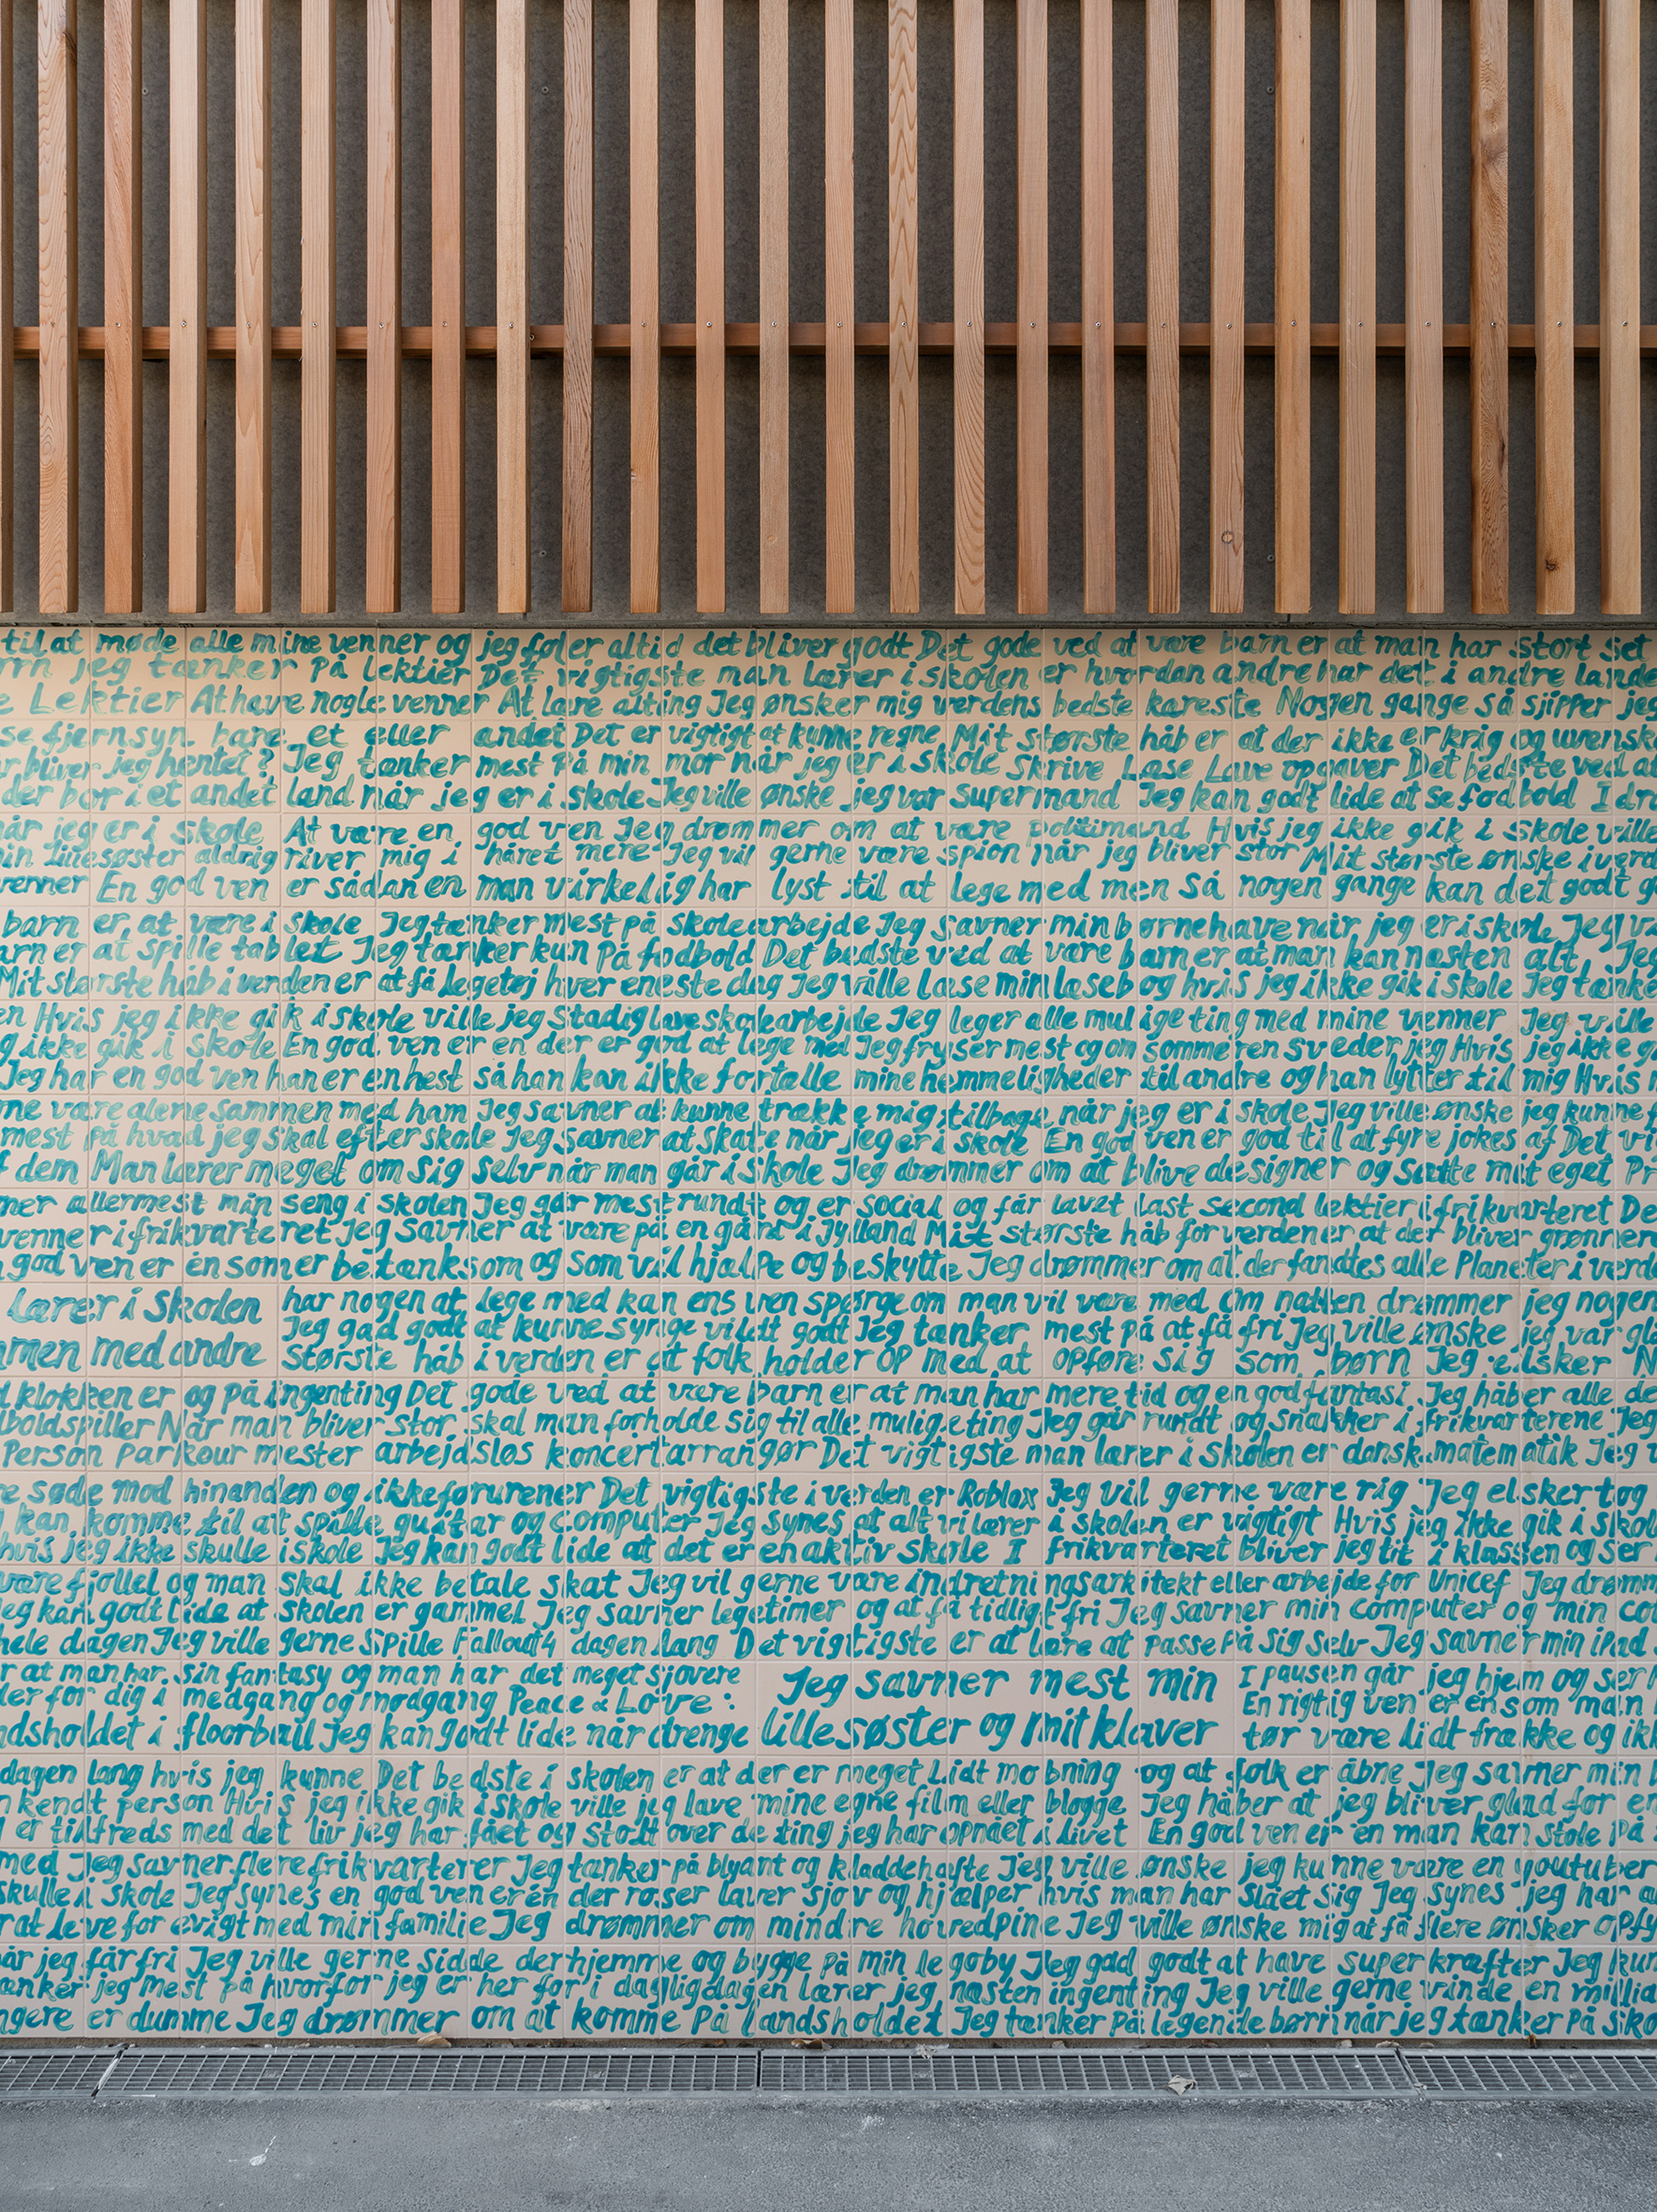 til at møde alle mine venner og jeg føler altid det bliver godt Det gode ved at være barn er at man har stort set
jeg tænker På lektier Det vigtigste man lærer i skolen er hvordan andre har det i andre lande
Lektier At have nogle venner At lære alting Jeg ønsker mig verdens bedste kæreste Nogen gange så sjipper jeg
se fjernsyn bare et eller andet Det er vigtigt at kunne regne Mit største håb er at der ikke er krig og uvensk
bliver jeg hentet? Jeg tænker mest På min mor når jeg er i skole Skrive Læse Lave opgaver Det bedste ved at
der bor i et andet land når jeg er i skole Jeg ville ønske jeg var supermand Jeg kan godt lide at se fodbold I
når jeg er i skole At være en god ven Jeg drømmer om at være politimand Hvis jeg ikke gik i skole ville
min lillesøster aldrig river mig i håret mere Jeg vil gerne være spion når jeg bliver stor Mit største ønske i
venner En god ven er sådan en man virkelig har lyst til at lege med men så nogen gange kan det godt
barn er at være i skole Jeg tænker mest på skolearbejde Jeg savner min børnehave når jeg er i skole Jeg
barn er at spille tablet Jeg tænker kun På fodbold Det bedste ved at være barn er at man kan næsten alt Jeg
Mit største håb i verden er at få legetøj hver eneste dag Jeg ville læse min læsebog hvis jeg ikke gik i skole Jeg tænke
Hvis jeg ikke gik i skole ville jeg stadig lave skolearbejde Jeg leger alle mulige ting med mine venner Jeg ville
ikke gik i skole En god ven er en der er god at lege med Jeg fryser mest og om sommeren sveder jeg Hvis jeg ikke
Jeg har en god ven han er en hest så han kan ikke fortælle mine hemmeligheder til andre og han lytter til mig Hvis
være alene sammen med ham Jeg savner at kunne trække mig tilbage når jeg er i skole Jeg ville ønske jeg kunne
mest på hvad jeg skal efter skole Jeg savner at skate når jeg er i skole En god ven er god til at fyre jokes af Det
dem Man lærer meget om sig selv når man går i skole Jeg drømmer om at blive designer og sætte mit eget
allermest min seng i skolen Jeg går mest rundt og er social og får lavet last second lektier i frikvarteret De
venner i frikvarteret Jeg Savner at være på en gård i Jylland Mit største håb for verden er at der bliver grønnere
god ven er én som er betænksom og som vil hjælpe og beskytte Jeg drømmer om at der fandtes alle Planeter i verde
lærer i skolen har nogen at lege med kan ens ven spørge om man vil være med Om natten drømmer jeg nogen
Jeg gad godt at kunne synge vildt godt Jeg tænker mest på at få fri Jeg ville ønske jeg var
med andre største håb i verden er at folk holder op med at opføre sig som børn Jeg elsker
klokken er og på ingenting Det gode ved at være barn er at man har mere tid og en god fantasi Jeg håber alle
Når man bliver stor skal man forholde sig til alle mulige ting Jeg går rundt og snakker i frikvarterene Jeg
Person Parkour mester arbejdsløs koncertarrangør Det vigtigste man lærer i skolen er dansk matematik Jeg
søde mod hinanden og ikke forurener Det vigtigste i verden er Roblox Jeg vil gerne være rig Jeg elsker tog
kan komme til at spille guitar og computer Jeg synes at alt vi lærer i skolen er vigtigt Hvis jeg ikke gik i skol
hvis jeg ikke skulle i skole Jeg kan godt lide at det er en aktiv skole I frikvarteret bliver jeg tit i klassen og ser
være fjollet og man skal ikke betale skat Jeg vil gerne være indretningsarkitekt eller arbejde for Unicef Jeg drømm
Jeg kan godt lide at skolen er gammel Jeg savner legetimer og at få tidligt fri Jeg savner min computer og min
hele dagen Jeg ville gerne spille Fallout4 dagen lang Det vigtigste er at lære at passe På sig selv Jeg savner min iPad
at man har sin fantasy og man har det meget sjovere Jeg savner mest min I pausen går jeg hjem og ser
der for dig i medgang og modgang Peace & Love En rigtig ven er én som man
landsholdet i floorball Jeg kan godt lide når drenge lillesøster og mit klaver tør være lidt frække og
dagen lang hvis jeg kunne Det bedste i skolen er at der er meget lidt mobning og at folk er åbne Jeg savner min
kendt person Hvis jeg ikke gik i skole ville jeg lave mine egne film eller blogge Jeg håber at jeg bliver glad for
er tilfreds med det liv jeg har fået og stolt over de ting jeg har opnået i livet En god ven er en man kan stole På
med Jeg savner flere frikvarterer Jeg tænker på blyant og kladdehæfte Jeg ville ønske jeg kunne være en youtuber
skulle i skole Jeg synes en god ven er én der roser laver sjov og hjælper hvis man har slået sig Jeg synes jeg har
at leve for evigt med min familie Jeg drømmer om mindre hovedpine Jeg ville ønske mig at få flere ønsker
når jeg får fri Jeg ville gerne sidde derhjemme og bygge på min legoby Jeg gad godt at have superkræfter Jeg
tænker jeg mest på hvorfor jeg er her for i dagligdagen lærer jeg næsten ingenting Jeg ville gerne vinde en
er dumme Jeg drømmer om at komme På landsholdet Jeg tænker På legende børn når jeg tænker På